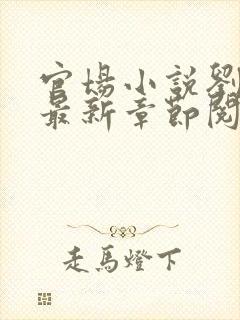 官場小說劉
最新章節閱
走馬燈下